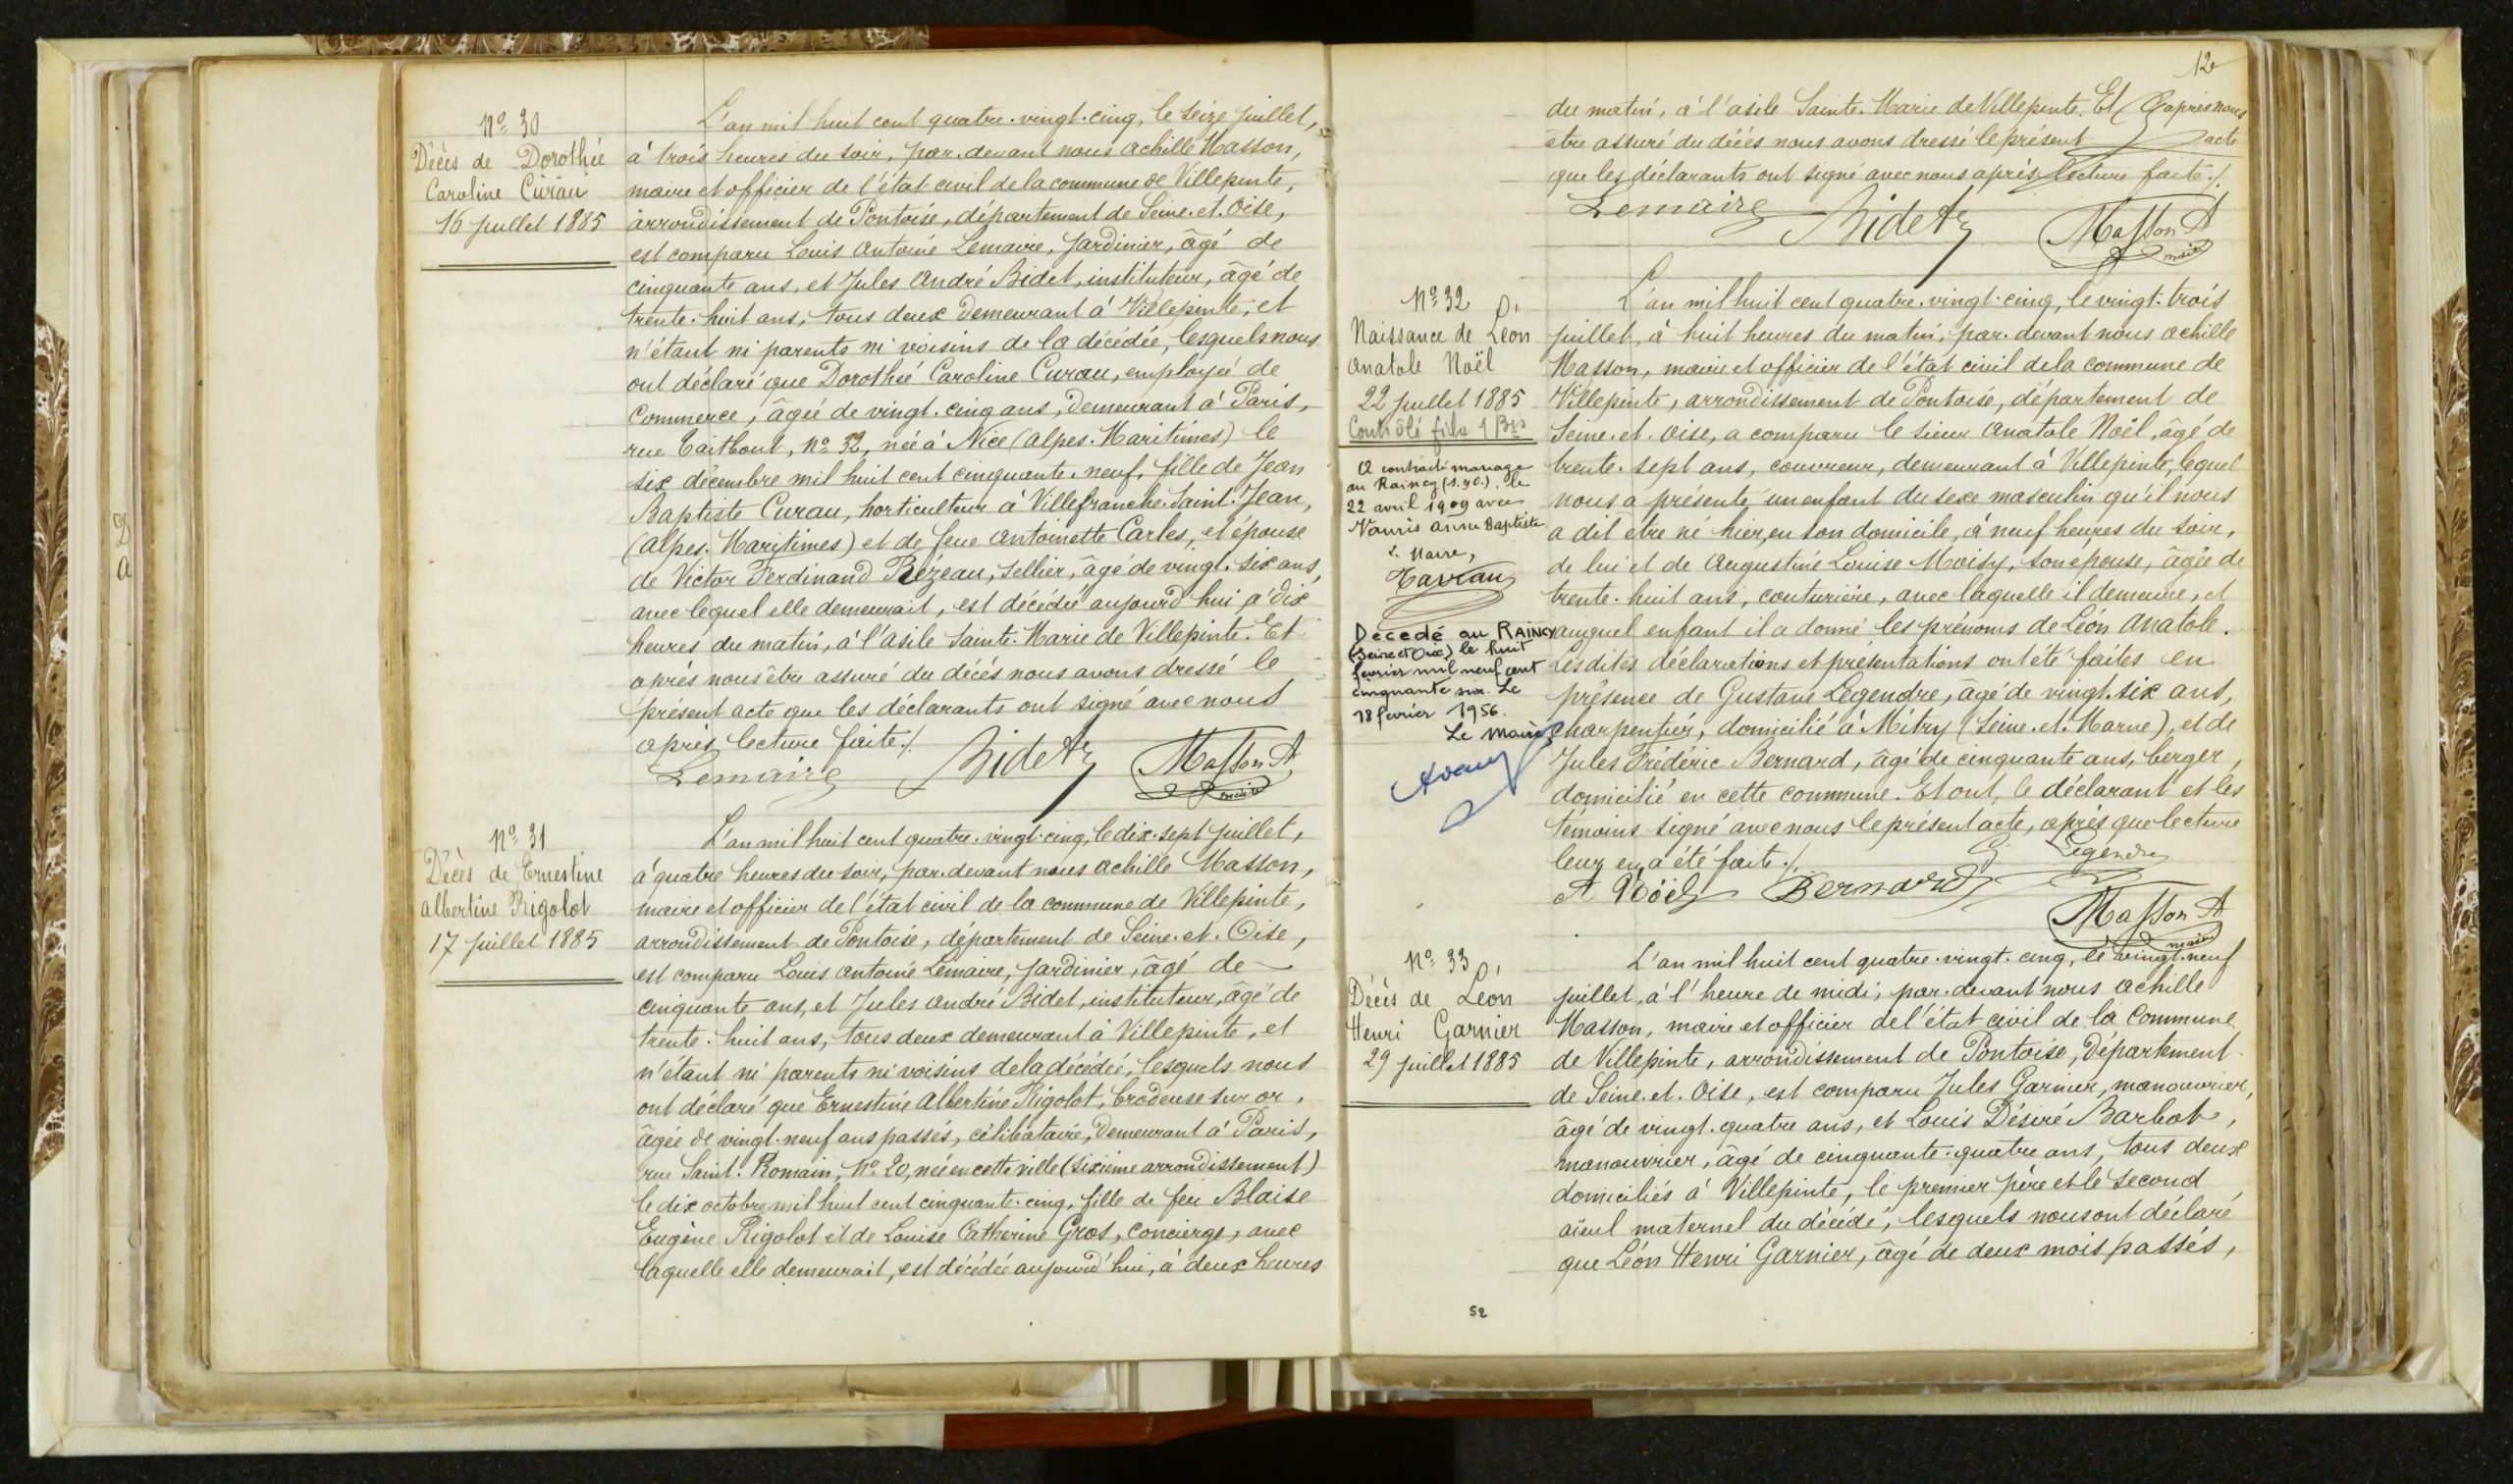 Nº 30
Décès de Dorothée
Caroline Curau
16 juillet 1885
L'an mil huit cent quatre-vingt-cinq, le seize juillet,
à trois heures du soir, par-devant nous Achille Masson,
maire et officier de l'état civil de la commune de Villepinte,
arrondissement de Pontoise, département de Seine-et-Oise,
est comparu Louis Antoine Lemaire, jardinier, âgé de
cinquante ans, et Jules André Bidet, instituteur, âgé de
trente-huit ans, tous deux demeurant à Villepinte, et
n'étant ni parents ni voisins de la décédée, lesquels nous
ont déclaré que Dorothée Caroline Curau, employée de
Commerce, âgée de vingt-cinq ans, demeurant à Paris,
rue Taitbout, Nº 32, née à Nice (Alpes-Maritimes) le
six décembre mil huit cent cinquante-neuf, fille de Jean
Baptiste Curau, horticulteur à Villefranche-Saint-Jean,
(Alpes-Maritimes) et de feue Antoinette Carles, et épouse
de Victor Ferdinand Rézeau, sellier, âgé de vingt-six ans,
avec lequel elle demeurait, est décédée aujourd'hui à dix
heures du matin, à l'asile Sainte-Marie de Villepinte. Et
après nous être assuré du décès nous avons dressé le
présent acte que les déclarants ont signé avec nous
après lecture faite./.
Lemaire Bidet Masson A
maire
Nº 31
Décès de Ernestine
Albertine Rigolot
17 juillet 1885
L'an mil huit cent quatre-vingt-cinq, le dix-sept juillet,
à quatre heures du soir, par-devant nous Achille Masson,
maire et officier de l'état civil de la commune de Villepinte,
arrondissement de Pontoise, département de Seine-et-Oise,
est comparu Louis Antoine Lemaire, jardinier, âgé de
cinquante ans, et Jules André Bidet, instituteur, âgé de
trente-huit ans, tous deux demeurant à Villepinte, et
n'étant ni parents ni voisins de la décédée, lesquels nous
ont déclaré que Ernestine Albertine Rigolot, brodeuse sur or,
âgée de vingt-neuf ans passés, célibataire, demeurant à Paris,
rue Saint-Romain, Nº 20, née en cette ville (sixième arrondissement)
le dix octobre mil huit cent cinquante-cinq, fille de feu Blaise
Eugène Rigolot et de Louise Catherine Gros, concierge, avec
laquelle elle demeurait, est décédée aujourd'hui, à deux heures
D
A
12
du matin, à l'asile Sainte-Marie de Villepinte. Et après nous
être assuré du décès nous avons dressé le présent acte
que les déclarants ont signé avec nous après lecture faite./.
Lemaire Bidet Masson A
maire
Nº 32
Naissance de Léon
Anatole Noël
22 juillet 1885
Contrôlé
A contracté mariage
au Raincy (S.&O.), le
22 avril 1909 avec
Anne Baptiste
Décédé au RAINCY
(Seine et Oise) le huit
février mil neuf cent
cinquante six. Le
18 février 1956.
Le Maire
L'an mil huit cent quatre-vingt-cinq, le vingt-trois
juillet, à huit heures du matin, par-devant nous Achille
Masson, maire et officier de l'état civil de la commune de
Villepinte, arrondissement de Pontoise, département de
Seine-et-Oise, a comparu le sieur Anatole Noël, âgé de
trente-sept ans, couvreur, demeurant à Villepinte, lequel
nous a présenté un enfant du sexe masculin qu'il nous
a dit être né hier, en son domicile, à neuf heures du soir,
de lui et de Augustine Louise Moisy, son épouse, âgée de
trente-huit ans, couturière, avec laquelle il demeure, et
auquel enfant il a donné les prénoms de Léon Anatole.
Lesdites déclarations et présentations ont été faites en
présence de Gustave Legendre, âgé de vingt-six ans,
charpentier, domicilié à Mitry (Seine-et-Marne), et de
Jules Frédéric Bernard, âgé de cinquante ans, berger,
domicilié en cette commune. Et ont, le déclarant et les
témoins signé avec nous le présent acte, après que lecture
leur en a été faite./.
A Noël Bernard G Legendre
Masson A
maire
Nº 33
Décès de Léon
Henri Garnier
29 juillet 1885
L'an mil huit cent quatre-vingt-cinq, le vingt-neuf
juillet, à l'heure de midi, par-devant nous Achille
Masson, maire et officier de l'état civil de la Commune
de Villepinte, arrondissement de Pontoise, Département
de Seine-et-Oise, est comparu Jules Garnier, manouvrier,
âgé de vingt-quatre ans, et Louis Désiré Barbot,
manouvrier, âgé de cinquante-quatre ans, tous deux
domiciliés à Villepinte, le premier père et le second
aïeul maternel du décédé, lesquels nous ont déclaré
que Léon Henri Garnier, âgé de deux mois passés,
52